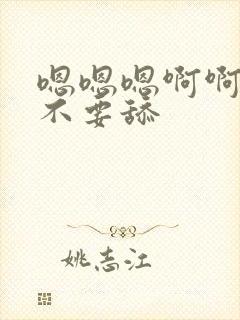 嗯嗯嗯啊啊
不要舔
姚志江